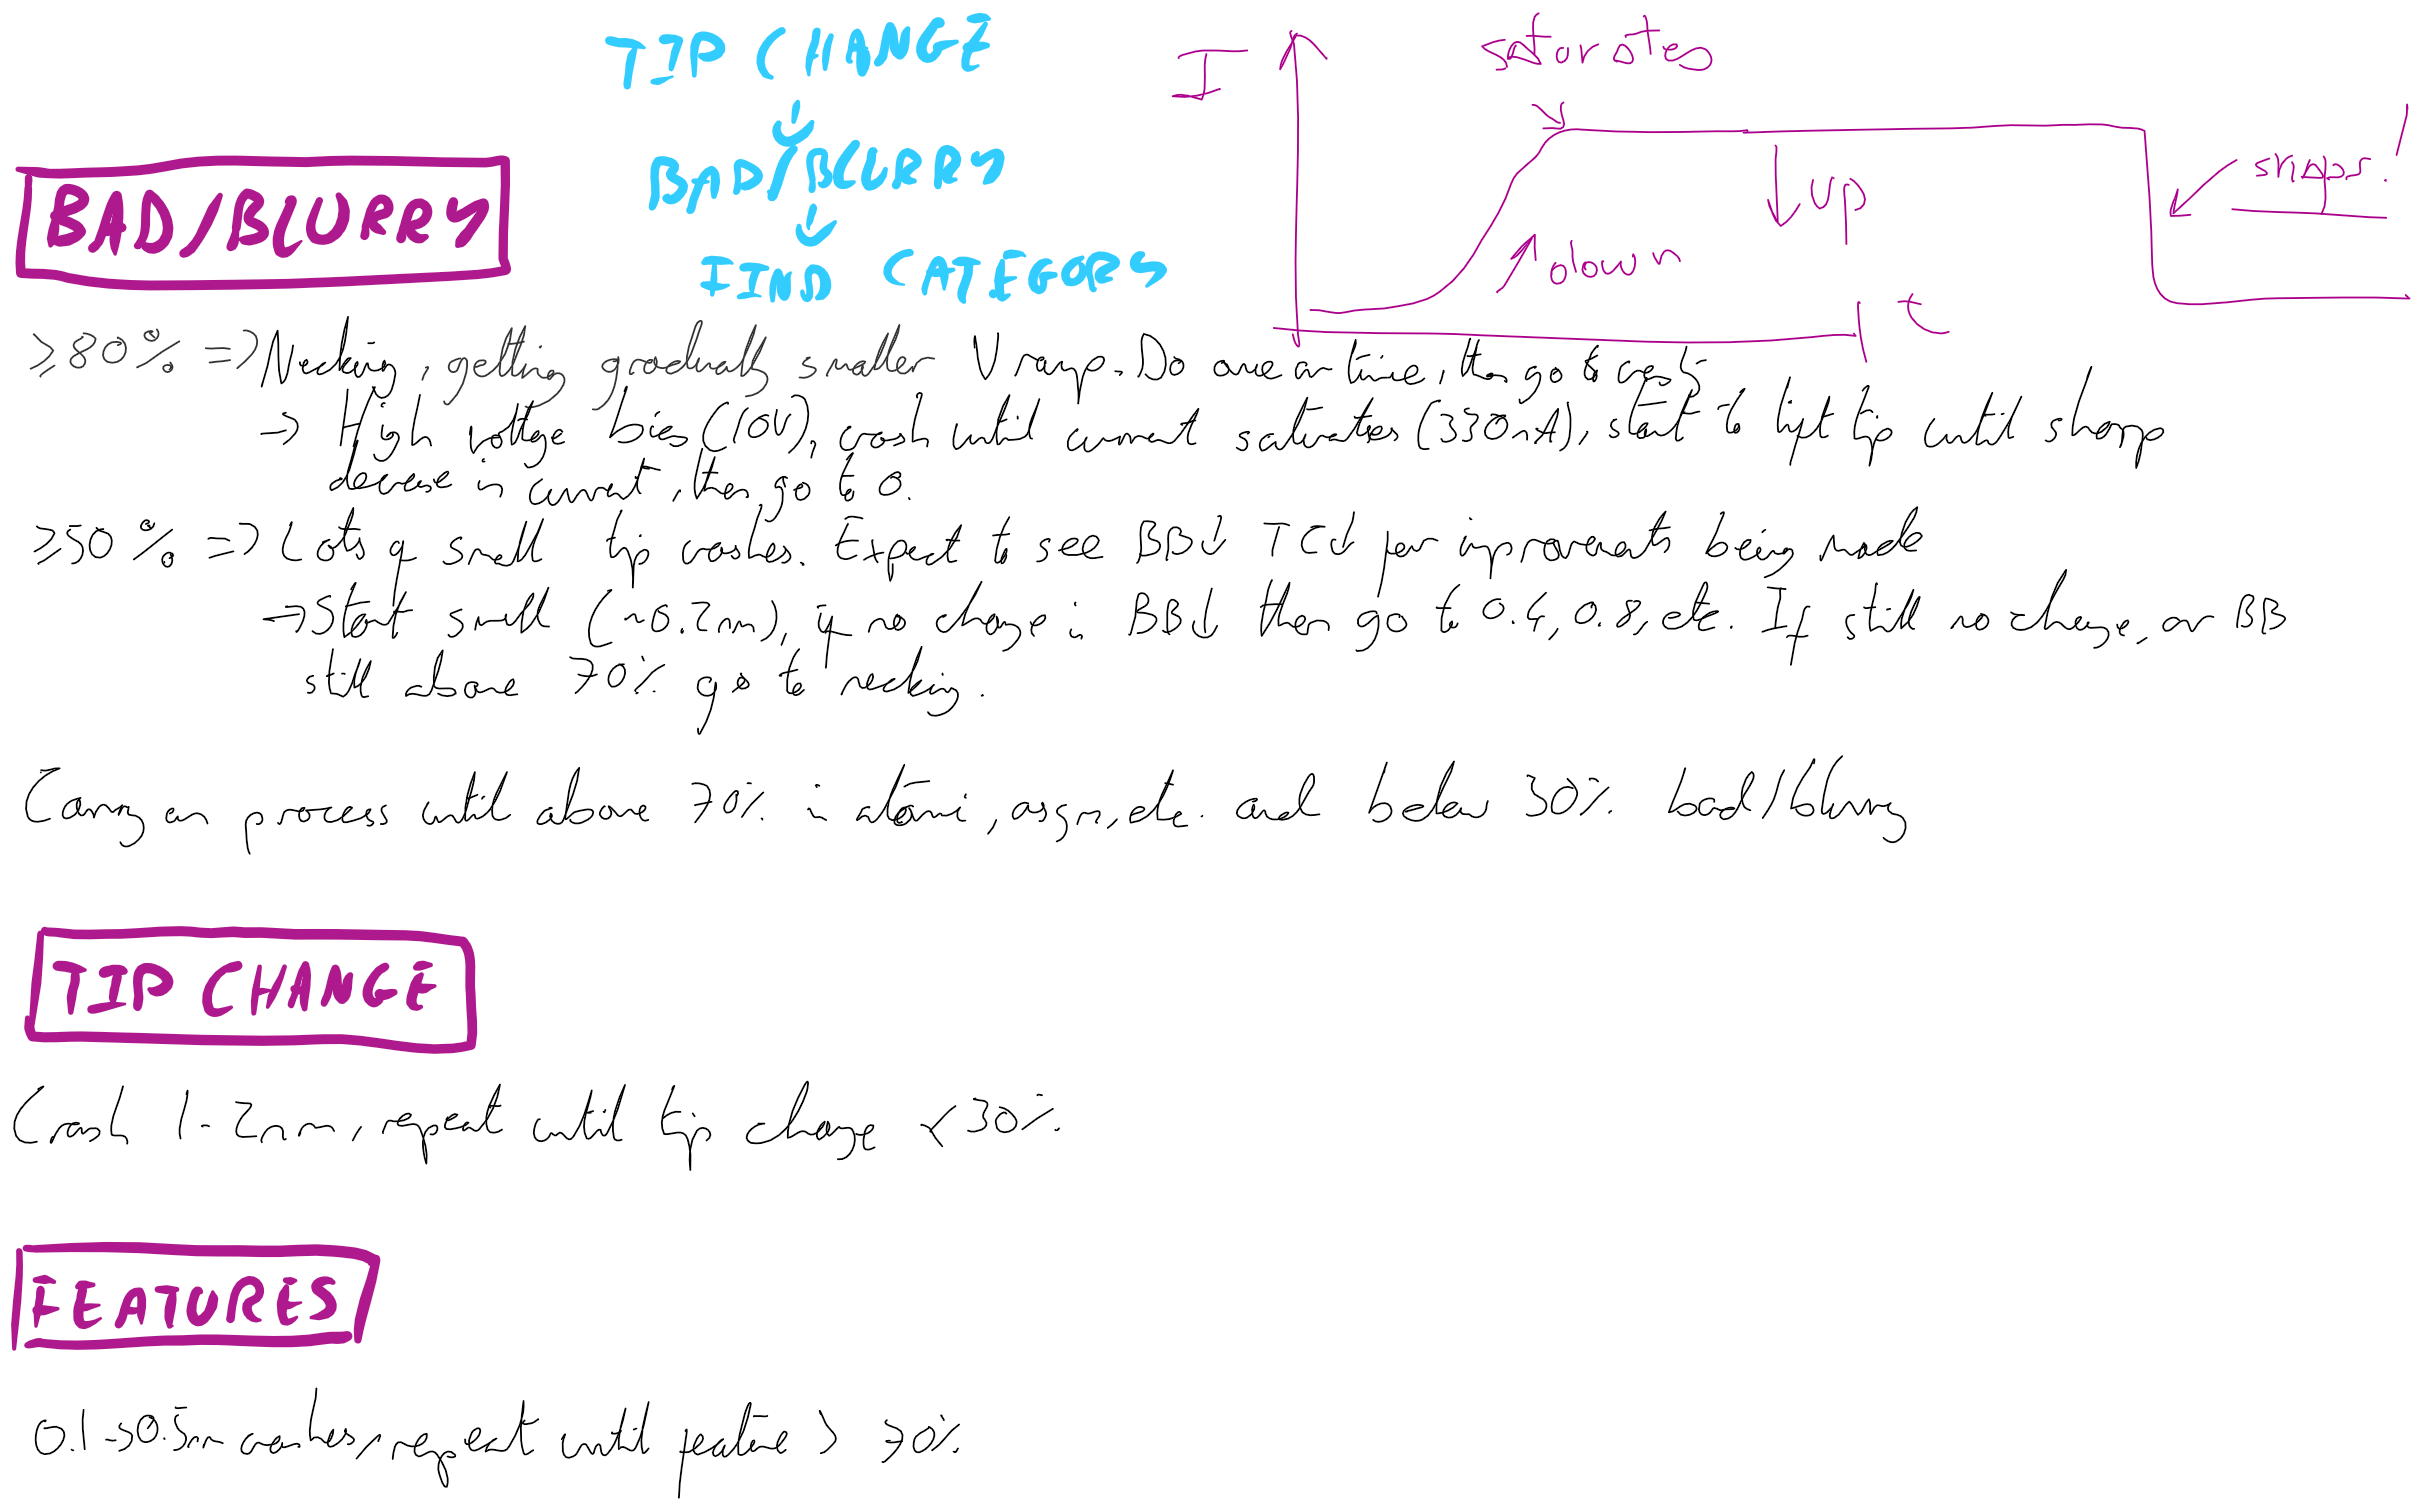 TIP CHANGE
↓
BAD/BLURRY
↓
FIND CATEGORY
I
saturates
down
up
snaps!
t
BAD/BLURRY
≥80% => Necking, getting gradually smaller V ramp. Do one at time, then go to crash
→ High voltage bias (10V), crash until current saturates (330nA), start to lift tip until sharp
decrease in current, then go to 0.
≥50% => Lots of small tip crashes. Expect to see BB↓ TC↓ for improvements being made
→ Start small (~0.2nm), if no change in BB↓ then go to 0.4, 0.8, etc. If still no change, or BB
still above 70% go to necking.
Carry on process until above 70% in atomic, asym, etc. and below 30% bad/blurry
TIP CHANGE
Crash 1-2nm, repeat until tip change <30%
FEATURES
0.1->0.5nm crashes, repeat until feature > 70%